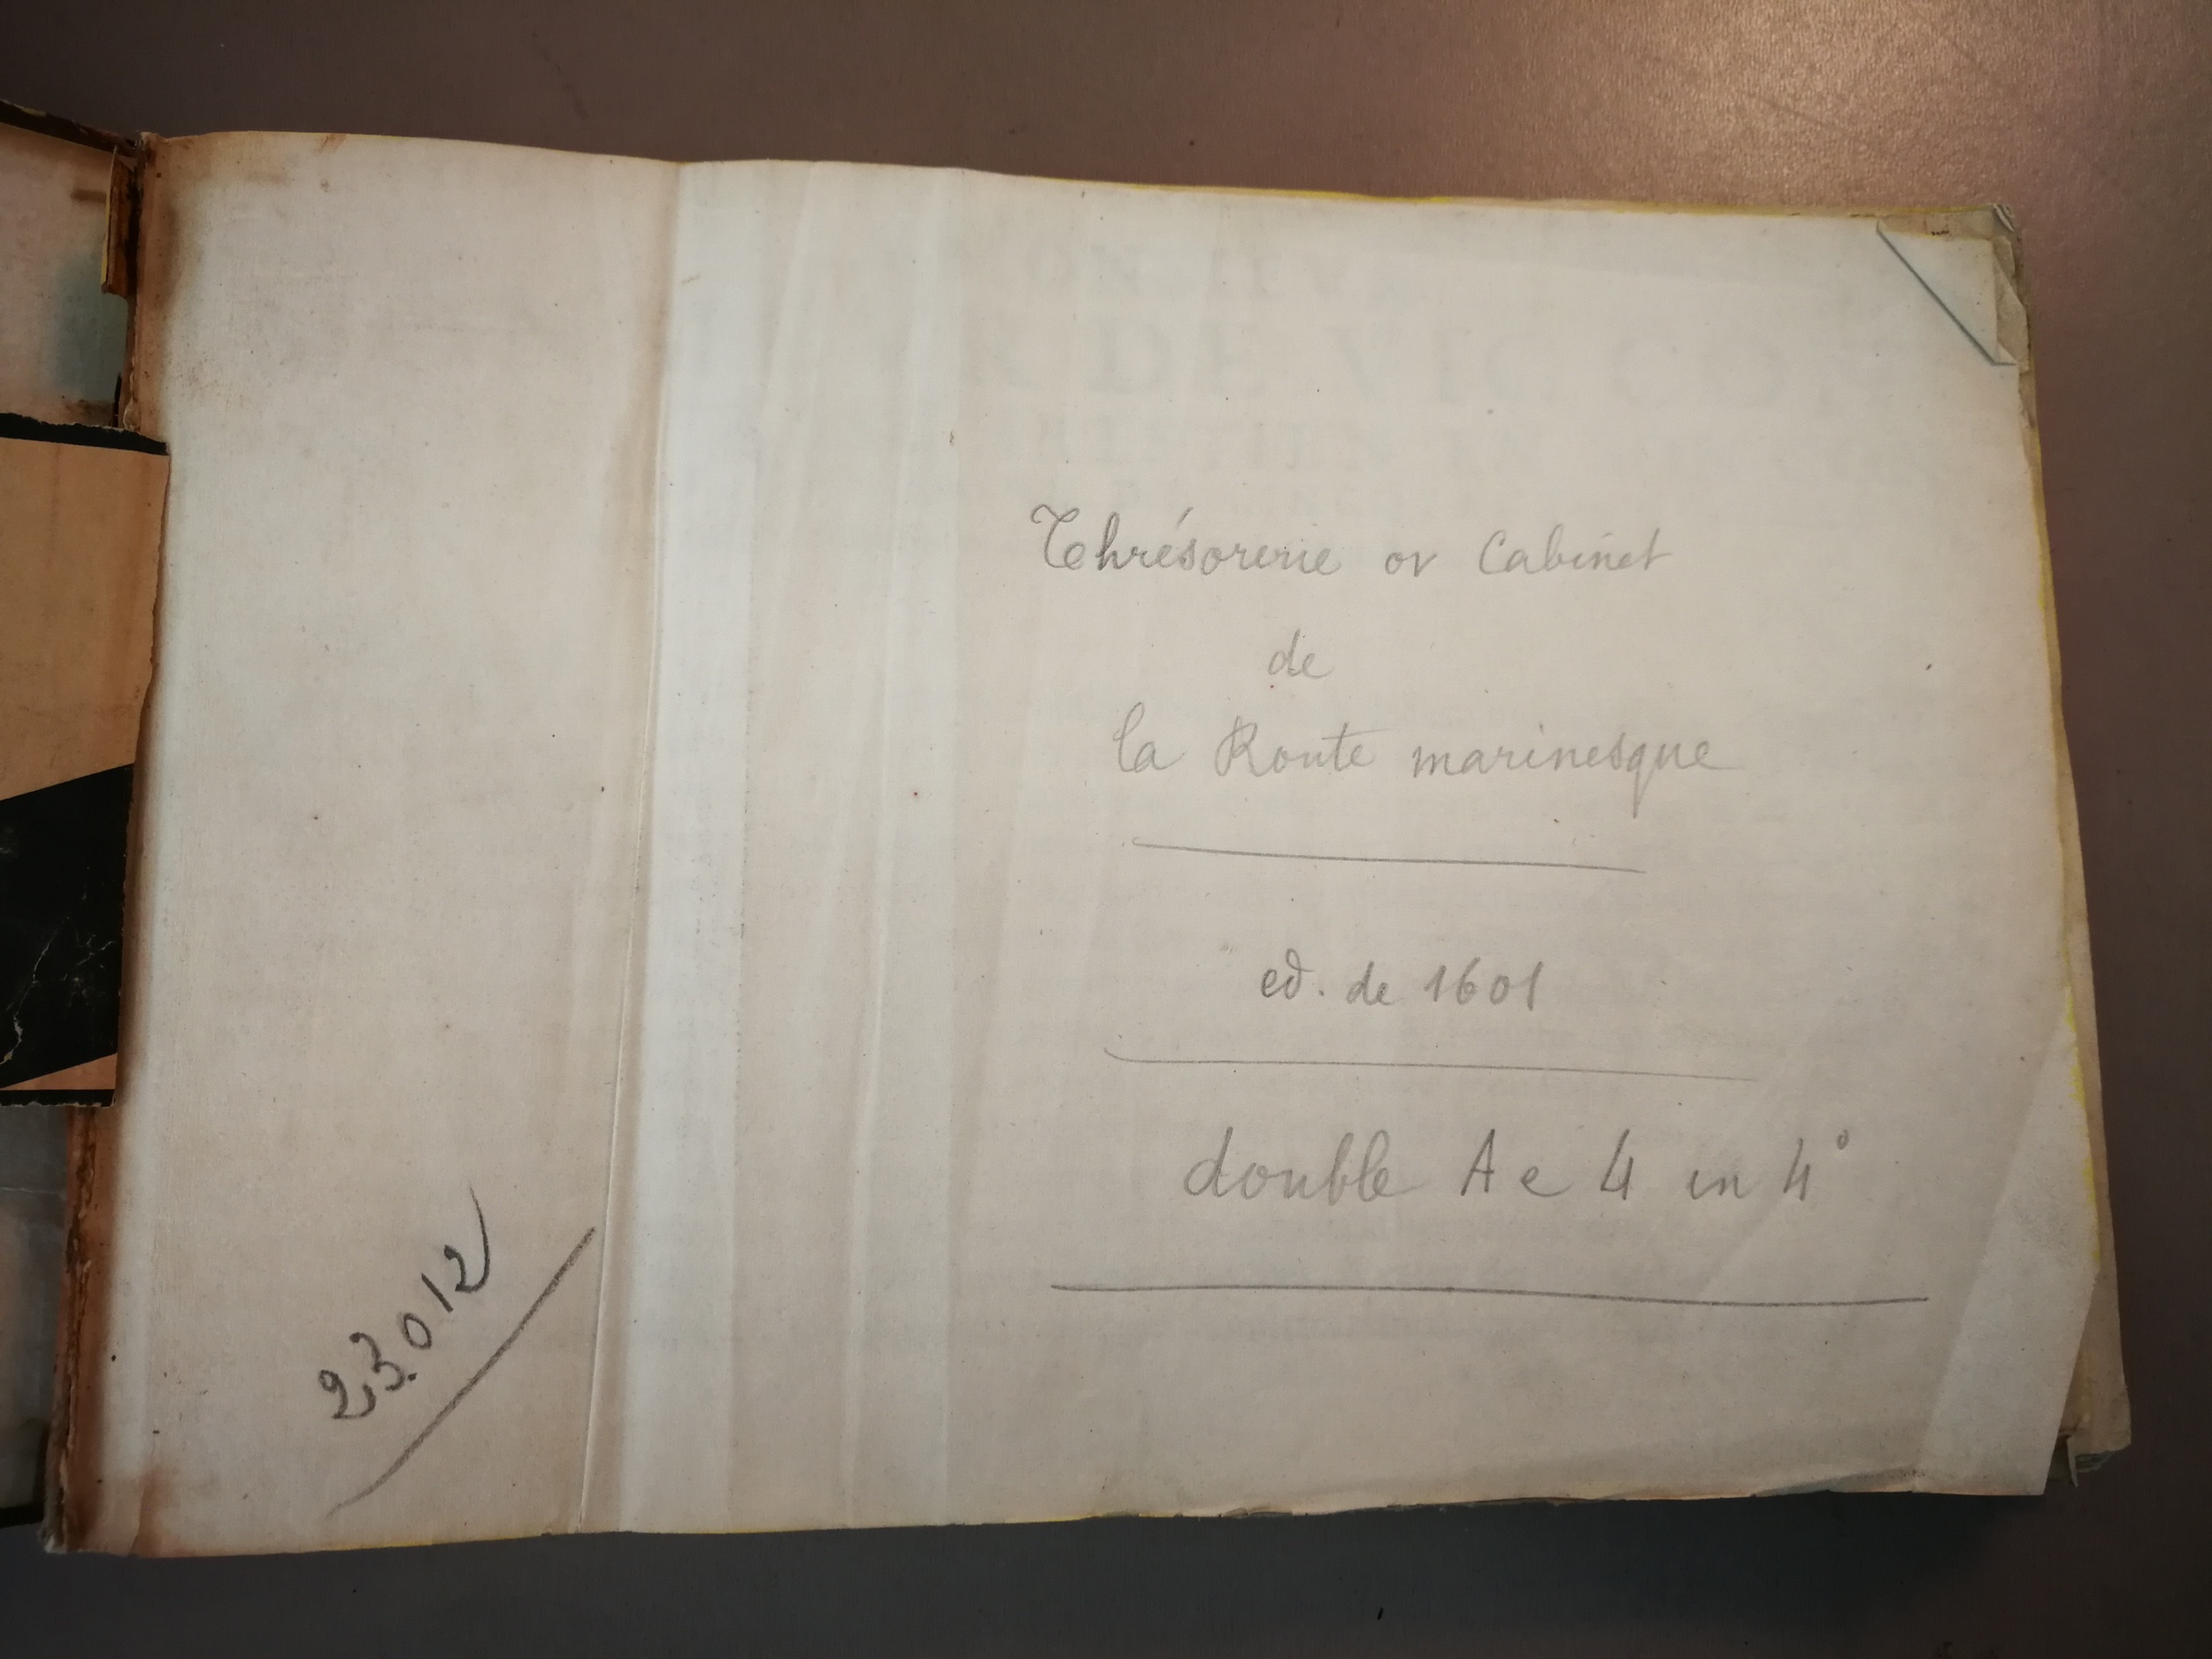 Thrésorerie ov Cabinet
de
la Route marinesque
ed. de 1601
double A e 4 in 4°
23.012